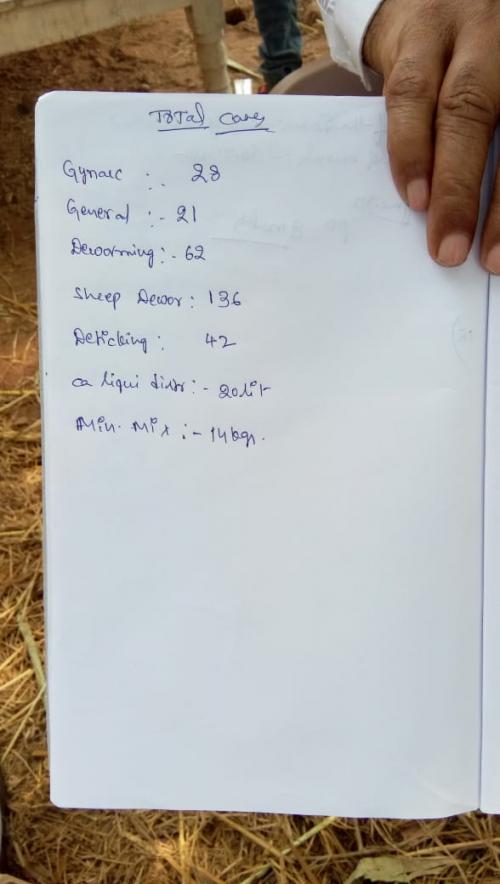 Total Cases
Gynaec :- 28
General :- 21
Deworming :- 62
Sheep Dewor : 136
Deticking : 42
ca liqui distr :- 20 lit
Min. Mix :- 14 kgs.